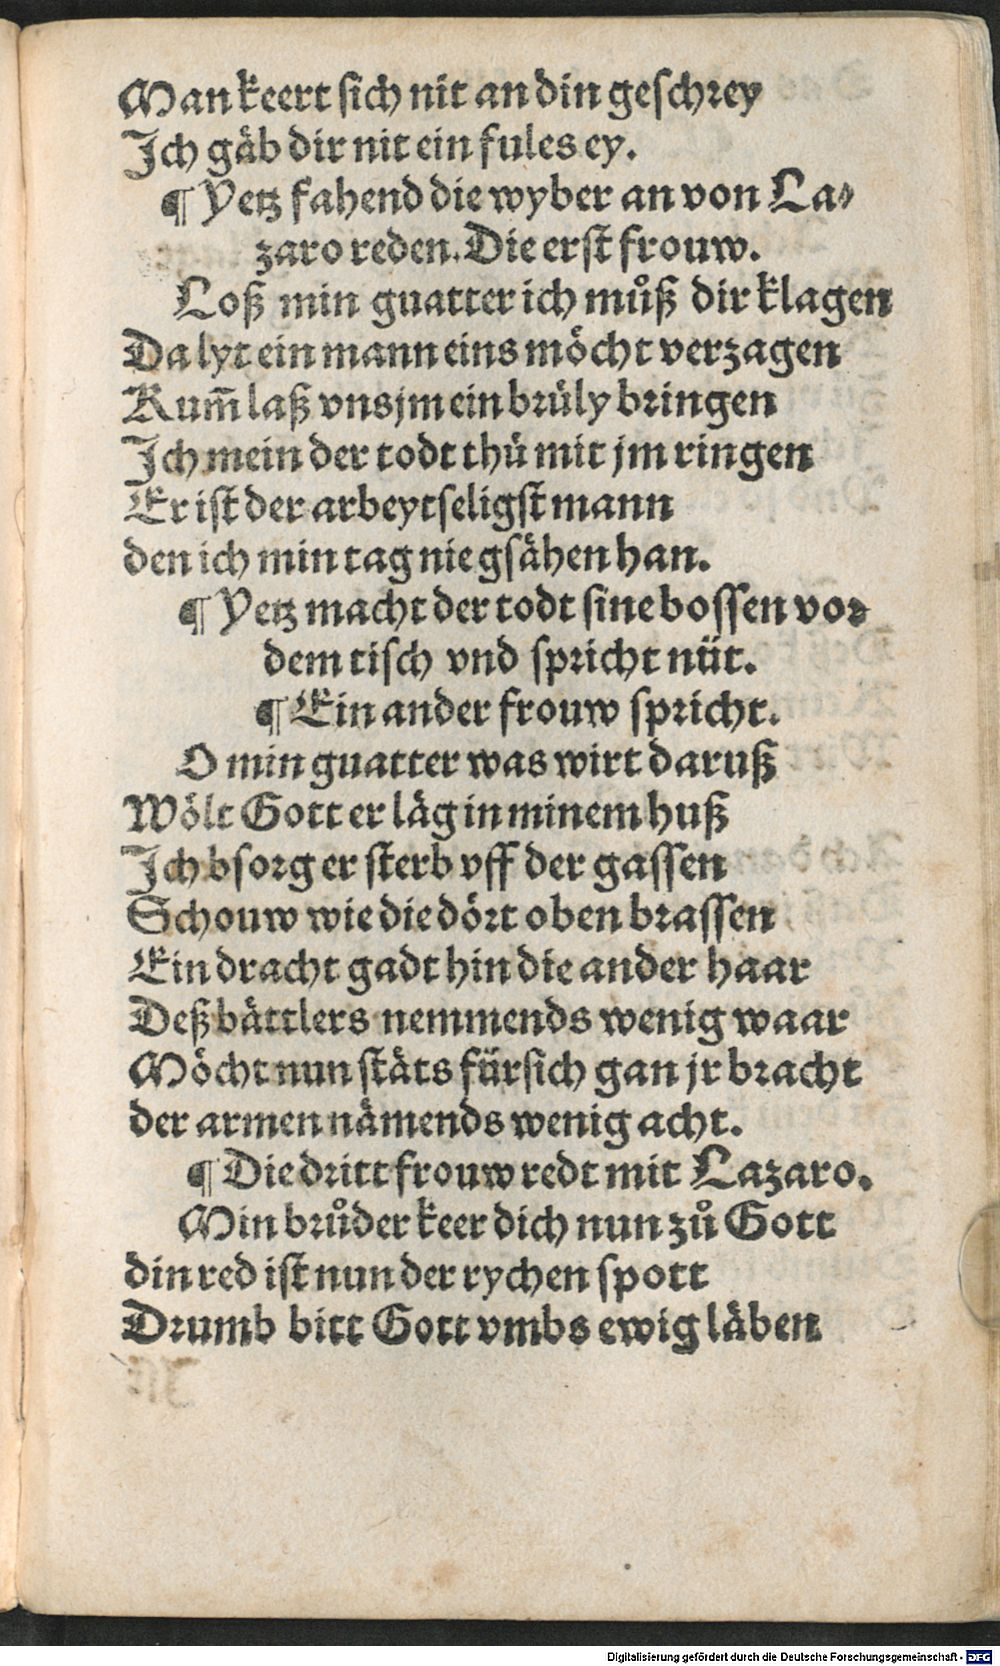 Man keert sich nit an din geschrey
Jch gäb dir nit ein fules ey.
¶ Yetz fahend die wyber an von La⸗
zaro reden. Die erst frouw.
Loß min guatter ich můß dir klagen
Da lyt ein mann eins möcht verzagen
Kum̃ laß vns jm ein brüly bringen
Jch mein der todt thü mit jm ringen
Er ist der arbeytseligst mann
den ich min tag nie gsähen han.
¶ Yetz macht der todt sine bossen vor
dem tisch vnd spricht nüt.
¶ Ein ander frouw spricht.
O min guatter was wirt daruß
Wölt Gott er läg in minem huß
Jch bsorg er sterb vff der gassen
Schouw wie die dört oben brassen
Ein dracht gadt hin die ander haar
Deß bättlers nemmends wenig waar
Möcht nun stäts fürsich gan jr bracht
der armen nämends wenig acht.
¶ Die dritt frouw redt mit Lazaro.
Min brůder keer dich nun zů Gott
din red ist nun der rychen spott
Drumb bitt Gott vmbs ewig läben
Digitalisierung gefördert durch die Deutsche Forschungsgemeinschaft - DFG